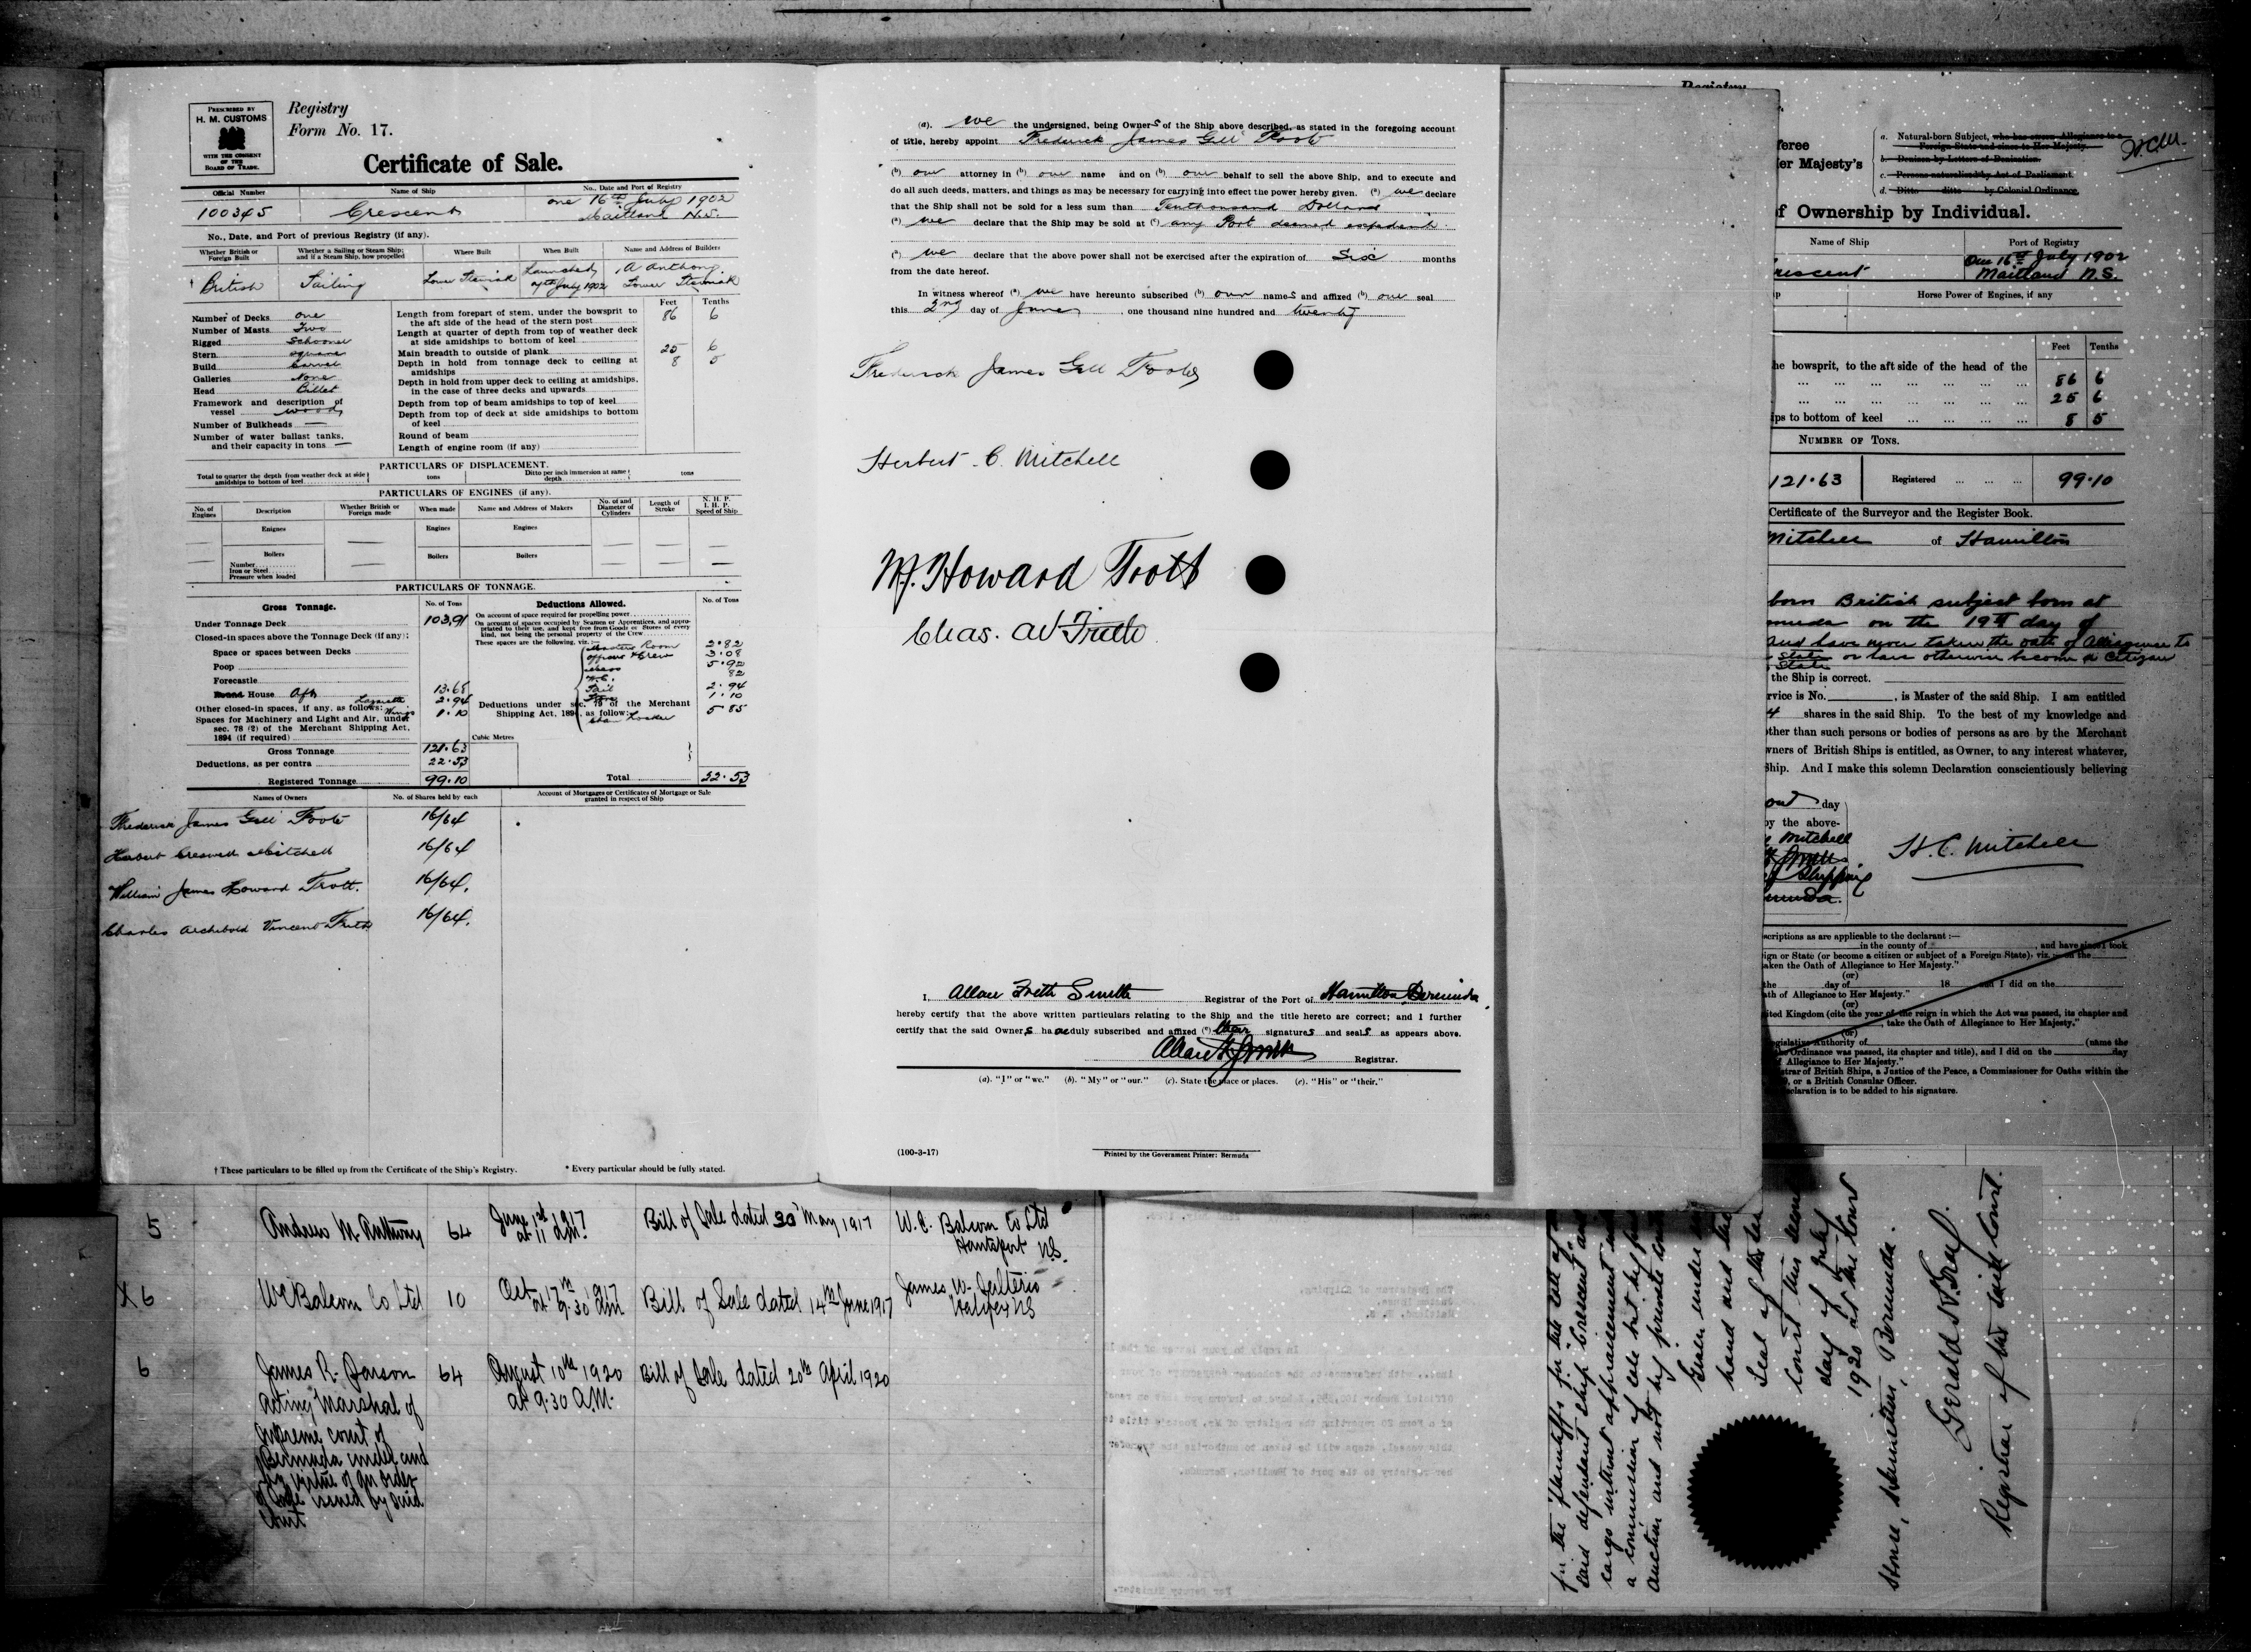 PRESCRIBED BY
H. M. CUSTOMS
WITH THE CONSENT
OF THE
BOARD OF TRADE.
Registry
Form No. 17.
Certificate of Sale.
Official Number
Name of Ship
No., Date and Port of Registry
100345
Crescent
one 16th July 1902
Maitland N.S.
No., Date, and Port of previous Registry (if any).
Whether British or Foreign Built
Whether a Sailing or Steam Ship; and if a Steam Ship, how propelled
Where Built
When Built
Name and Address of Builders
British
Sailing
Lower
Launched
July 1902
A Anthony
Lower
Feet Tenths
Number of Decks one
Number of Masts Two
Rigged Schooner
Stern square
Build Carvel
Galleries None
Head Billet
Framework and description of
vessel wood
Number of Bulkheads —
Number of water ballast tanks,
and their capacity in tons —
Length from forepart of stem, under the bowsprit to
the aft side of the head of the stern post 86 6
Length at quarter of depth from top of weather deck
at side amidships to bottom of keel
Main breadth to outside of plank 25 6
Depth in hold from tonnage deck to ceiling at
amidships 8 5
Depth in hold from upper deck to ceiling at amidships,
in the case of three decks and upwards
Depth from top of beam amidships to top of keel
Depth from top of deck at side amidships to bottom
of keel
Round of beam
Length of engine room (if any)
PARTICULARS OF DISPLACEMENT.
Total to quarter the depth from weather deck at side
amidships to bottom of keel
tons
Ditto per inch immersion at same
depth
tons
PARTICULARS OF ENGINES (if any).
No. of Engines
Description
Whether British or Foreign made
When made
Name and Address of Makers
No. of and Diameter of Cylinders
Length of Stroke
N. H. P.
I. H. P.
Speed of Ship
Engines
Engines
Engines
Boilers
Boilers
Boilers
Number
Iron or Steel
Pressure when loaded
PARTICULARS OF TONNAGE.
Gross Tonnage.
No. of Tons
Deductions Allowed.
No. of Tons
Under Tonnage Deck 103.91
Closed-in spaces above the Tonnage Deck (if any):
Space or spaces between Decks
Poop
Forecastle
Round House Aft 13.68
Other closed-in spaces, if any, as follows: 2.94
Spaces for Machinery and Light and Air, under 1.10
sec. 78 (2) of the Merchant Shipping Act,
1894 (if required)
Gross Tonnage 121.63
Deductions, as per contra 22.53
Registered Tonnage 99.10
On account of space required for propelling power
On account of spaces occupied by Seamen or Apprentices, and appro-
priated to their use, and kept free from Goods or Stores of every
kind, not being the personal property of the Crew
These spaces are the following, viz.:—
Masters Room 2.82
Officers & Crew 3.08
5.92
W.C. 82
Sail 2.94
1.10
Deductions under sec. 79 of the Merchant
Shipping Act, 1894, as follow: 5 85
Locker
Cubic Metres
Total 22.53
Names of Owners
No. of Shares held by each
Account of Mortgages or Certificates of Mortgage or Sale
granted in respect of Ship
Frederick James Gell Foote 16/64
Herbert Creswell Mitchell 16/64
William James Howard Trott. 16/64.
Charles Archibold Vincent Frith 16/64.
† These particulars to be filled up from the Certificate of the Ship's Registry.
* Every particular should be fully stated.
(a). we the undersigned, being Owners of the Ship above described, as stated in the foregoing account
of title, hereby appoint Frederick James Gell Foote
(b) our attorney in (b) our name and on (b) our behalf to sell the above Ship, and to execute and
do all such deeds, matters, and things as may be necessary for carrying into effect the power hereby given. (a) we declare
that the Ship shall not be sold for a less sum than Tenthousand Dollars
(a) we declare that the Ship may be sold at (c) any Port deemed expedient.
(a) we declare that the above power shall not be exercised after the expiration of Six months
from the date hereof.
In witness whereof (a) we have hereunto subscribed (b) our names and affixed (b) our seal
this 2nd day of June, one thousand nine hundred and twenty
Frederick James Gell Foote
Herbert C. Mitchell
W. J. Howard Trott
Chas. A V Frith
I, Allan Frith Smith Registrar of the Port of Hamilton Bermuda,
hereby certify that the above written particulars relating to the Ship and the title hereto are correct; and I further
certify that the said Owners have duly subscribed and affixed (e) their signatures and seals as appears above.
Allan F. Smith Registrar.
(a). "I" or "we." (b). "My" or "our." (c). State the place or places. (e). "His" or "their."
(100-3-17)
Printed by the Government Printer: Bermuda
eree
er Majesty's
a. Natural-born Subject, who has sworn Allegiance to a
Foreign State and since to Her Majesty.
b. Denizen by Letters of Denization.
c. Persons naturalized by Act of Parliament.
d. Ditto ditto by Colonial Ordinance.
H.C.M.
f Ownership by Individual.
Name of Ship
Port of Registry
rescent
One 16th July 1902
Maitland N.S.
Horse Power of Engines, if any
Feet Tenths
he bowsprit, to the aft side of the head of the
86 6
25 6
ips to bottom of keel 8 5
NUMBER OF TONS.
121.63 Registered 99.10
Certificate of the Surveyor and the Register Book.
Mitchell of Hamilton
born British subject born at
on the 19th day of
and have never taken the oath of Allegiance to
State or have otherwise become a Citizen
State
the Ship is correct.
rvice is No. , is Master of the said Ship. I am entitled
4 shares in the said Ship. To the best of my knowledge and
other than such persons or bodies of persons as are by the Merchant
wners of British Ships is entitled, as Owner, to any interest whatever,
Ship. And I make this solemn Declaration conscientiously believing
day
by the above-
Mitchell
Smith
of Shipping
H. C. Mitchell
scriptions as are applicable to the declarant:—
in the county of , and have since I took
ign or State (or become a citizen or subject of a Foreign State), viz.: on the
taken the Oath of Allegiance to Her Majesty."
(or)
the day of 18 and I did on the
ath of Allegiance to Her Majesty."
(or)
ited Kingdom (cite the year of the reign in which the Act was passed, its chapter and
, take the Oath of Allegiance to Her Majesty."
(or)
egislative Authority of (name the
he Ordinance was passed, its chapter and title), and I did on the day
f Allegiance to Her Majesty."
strar of British Ships, a Justice of the Peace, a Commissioner for Oaths within the
, or a British Consular Officer.
eclaration is to be added to his signature.
5 Andrew M Anthony 64 June 1st 1917 at 11 a.m. Bill of Sale dated 30 May 1917 W. C. Balcom Co Ltd
Hantsport N.S.
X 6 WC Balcom Co Ltd 10 Oct 17th 1917 at 9.30 am Bill of Sale dated 14th June 1917 James W. Salterio
Halifax NS
6 James R. Parson 64 August 10th 1920 Bill of Sale dated 20th April 1920
Acting Marshal of at 9.30 A.M.
Supreme court of
Bermuda under and
by virtue of an order
of Sale issued by said
Court
for the plaintiffs for the sale of
said defendant ship Crescent and
cargo without appraisement
a commission of sale but by
auction and not by private
Given under
hand and the
Seal of the
Court this
day of July
1920 at the Court
House, Hamilton, Bermuda.
Gerald
Registrar of the said Court.